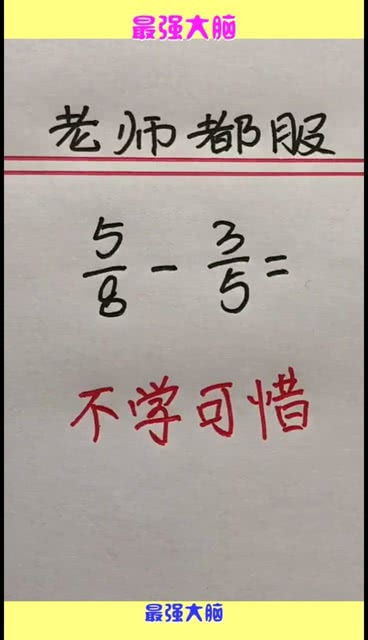 最强大脑
老师都服
5/8 - 3/5 =
不学可惜
最强大脑